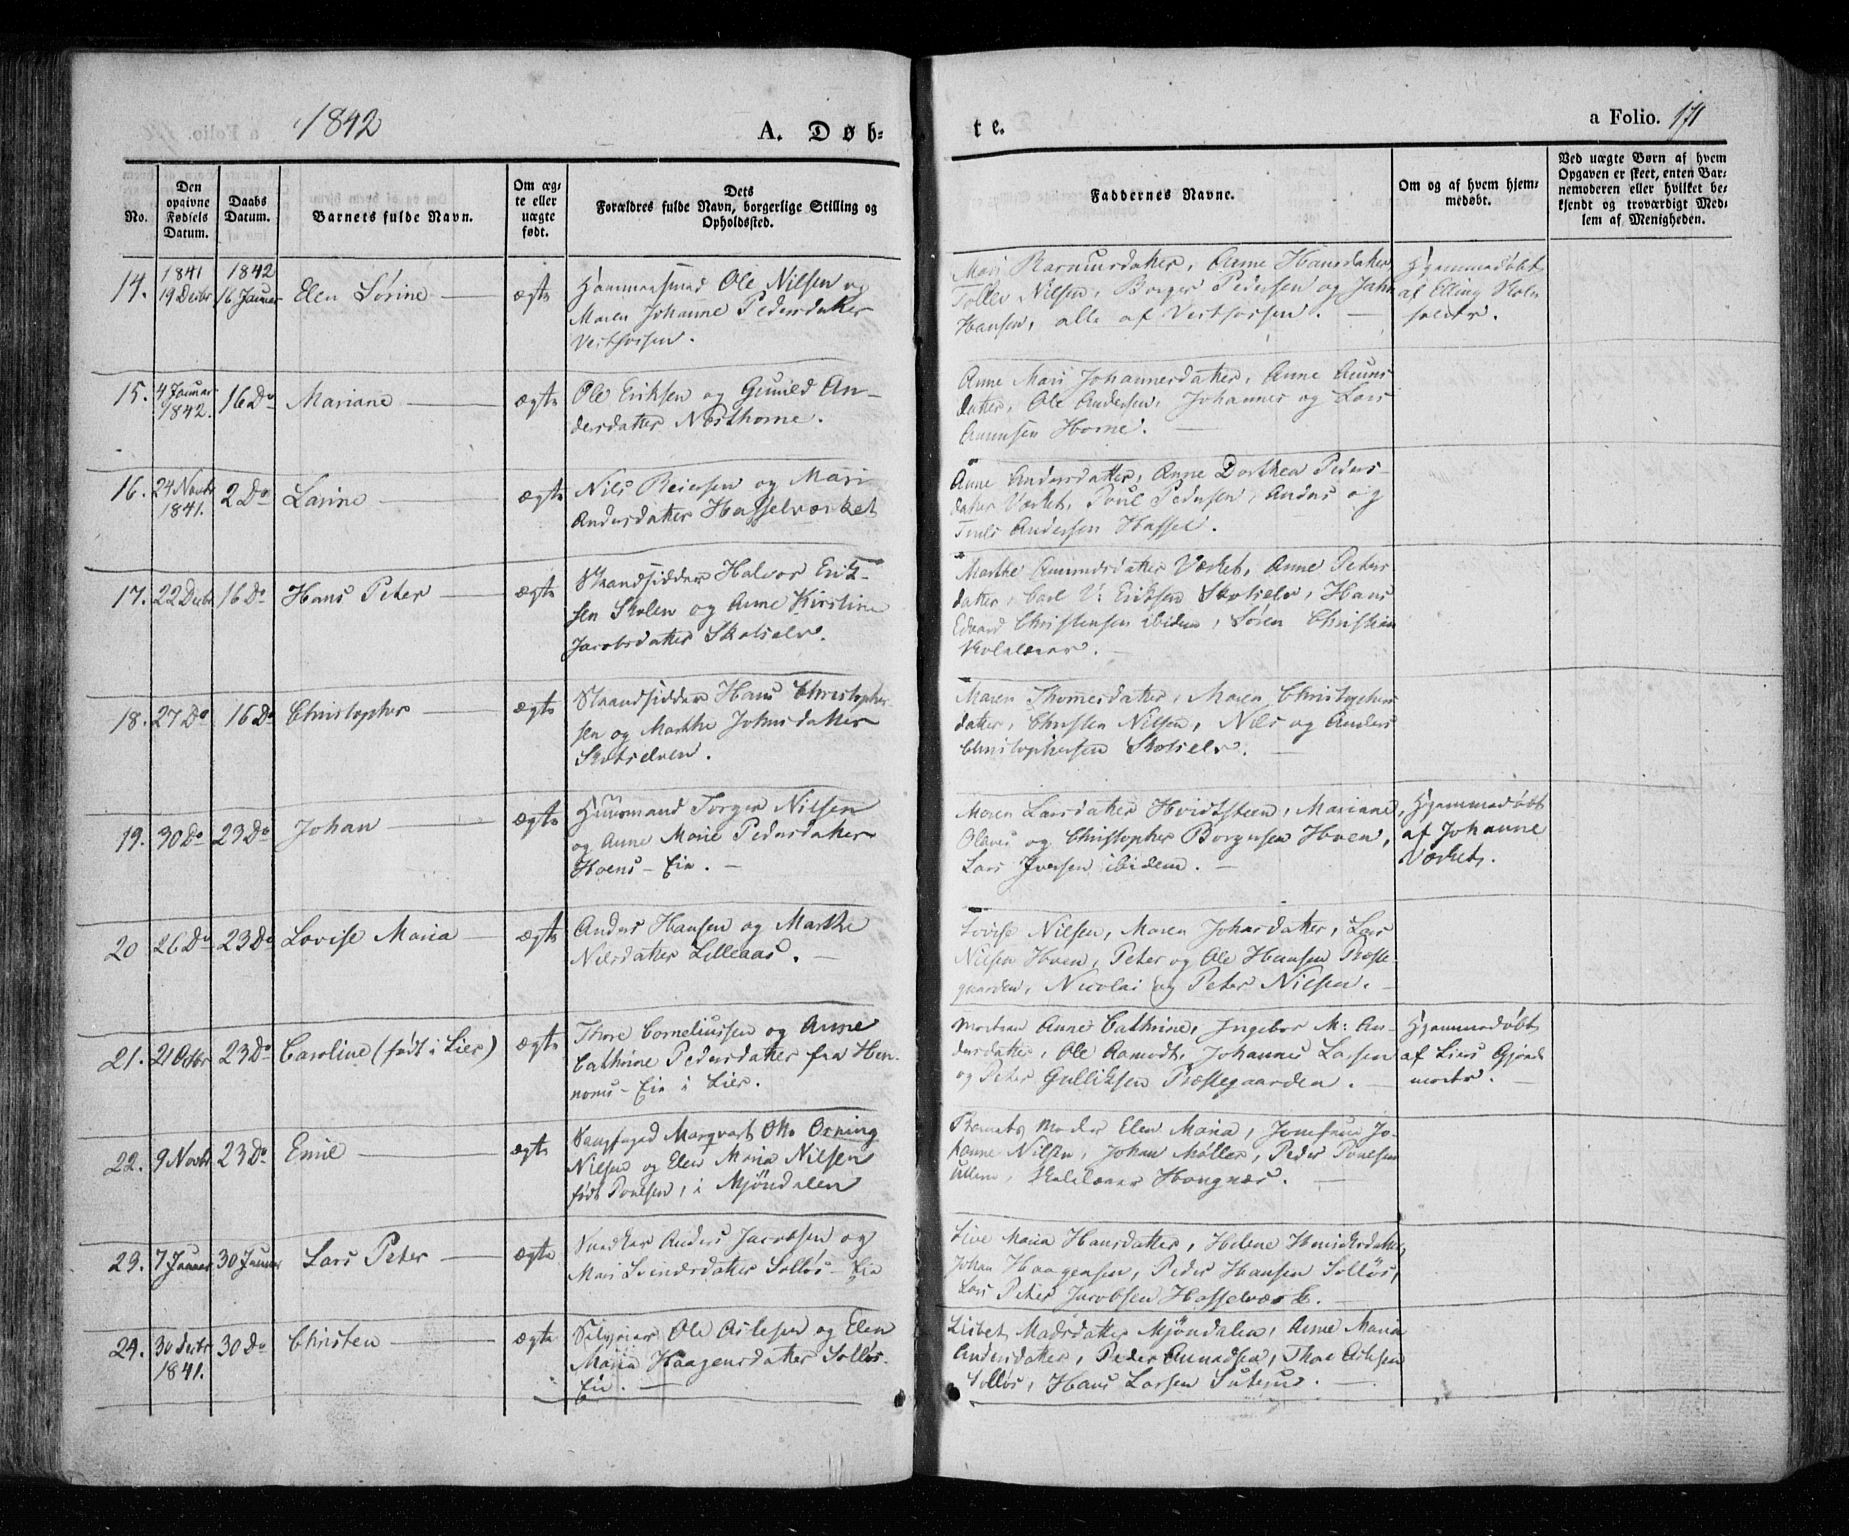 1842
A. Døb-
te.
a Folio. 171
No.
Den opgivne Fødsels Datum.
Daabs Datum.
Barnets fulde Navn.
Om ægte eller uægte født.
Dets Forældres fulde Navn, borgerlige Stilling og Opholdssted.
Faddernes Navne.
Om og af hvem hjemmedøbt.
Ved uægte Børn af hvem Opgaven er skeet, enten Barnemoderen eller hvilket bekjendt og troværdigt Medlem af Menigheden.
14. 1841 19 Decbr 1842 16 Januar Elen Sørine ægte
Hammersmed Ole Nilsen og
Maren Johanne Pedersdatter
Vestfossen.
Hansdatter,
Tollev Nilsen, Borger Pedersen og
Hansen, alle af Vestfossen.
Hjemmedøbt
af Elling
15. 4 Januar 1842. 16 Do Mariane ægte
Ole Eriksen og Gunild An-
dersdatter Nørsthorne.
Anne Mari Johannesdatter, Anne
datter, Ole Andersen, Johannes og Lars
Horne.
16. 24 Novbr 1841. 2 Do Larine ægte
Nils Reiersen og Mari
Andersdatter Hasselværket
Anne Andersdatter, Anne Dorthea Peders-
datter Værket, Poul Pedersen, Anders og
Truls Andersen Hassel.
17. 22 Decbr 16 Do Hans Peter ægte
Strandsidder Halvor Erik-
sen Skolen og Anne Kirstine
Jacobsdatter Skotselv.
Marthe Amundsdatter Værket, Anne Peters
datter, Carl V: Eriksen Skotselv, Hans
Edvard Christensen ibidem, Søren Christian
18. 27 Do 16 Do Christopher ægte
Strandsidder Hans Christopher
sen og Marthe Johnsdatter
Skotselven.
Maren Thomesdatter, Maren Christophers
datter, Christen Nilsen, Nils og Anders
Christophersen Skotselv.
19. 30 Do 23 Do Johan ægte
Huusmand Torger Nilsen
og Anne Marie Pedersdatter
Hoens-Eie.
Maren Larsdatter Hvidtsteen, Mariane,
Olaves og Christopher Borgersen Hoen,
Lars Iversen ibidem.
Hjemmedøbt
af Johanne
Værket.
20 26 Do 23 Do Lovise Maria ægte
Anders Hansen og Marthe
Nilsdatter Lilleaas.
Lovise Nilsen, Maren Johnsdatter, Lars
Nilsen Hoen, Peter og Ole Hansen Præste-
gaarden, Nicolai og Peter Nilsen.
21. 21 Octbr 23 Do Caroline (født i Lier) ægte
Thore Corneliussen og Anne
Cathrine Pedersdatter fra Hen-
nums-Eie i Lier.
Anne Cathrine, Ingebor M: An-
dersdatter, Ole Aamodt, Johannes Larsen
og Peter Gulliksen Præstegaarden.
Hjemmedøbt
af Liers Gjord
moder.
22. 9 Novbr 23 Do Emil ægte
Marqvart Otto Orning
Nilsen og Elen Maria Nilsen
født Poulsen, i Mjöndalen
Barnets Moder Elen Maria, Jomfrue Jo-
hanne Nilsen, Johan Møller, Peder Poulsen
Skolelærer
23. 7 Januar 30 Januar Lars Peter ægte
Anders Jacobsen og
Mari Solløs-Eie
Live Maria Hansdatter, Helene Henriksdatter,
Johan Haagensen, Peder Hansen Solløs,
Lars Peter Jacobsen Hasselværk.
24. 30 Decbr 1841. 30 Do Christen ægte
Ole Aslesen og Elen
Maria Haagensdatter Solløs-
Eie.
Lisbet Madsdatter Mjöndalen, Anne Maria
Andersdatter, Peder Amundsen, Thor Aslesen
Solløs, Hans Larsen